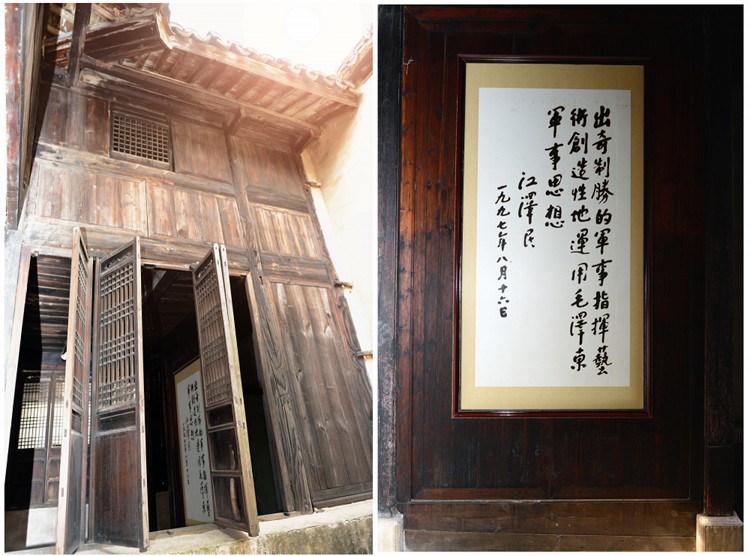 出奇制勝的軍事指揮藝
術創造性地運用毛澤東
軍事思想
江澤民
一九九七年八月十六日